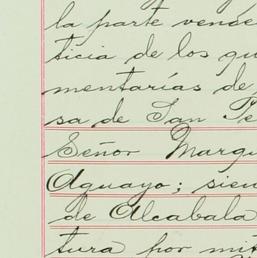 la parte vende
ticia de los
mentarías de
sa de San
Señor Marqu
Aguayo; sien
de Alcabala
tura por mit